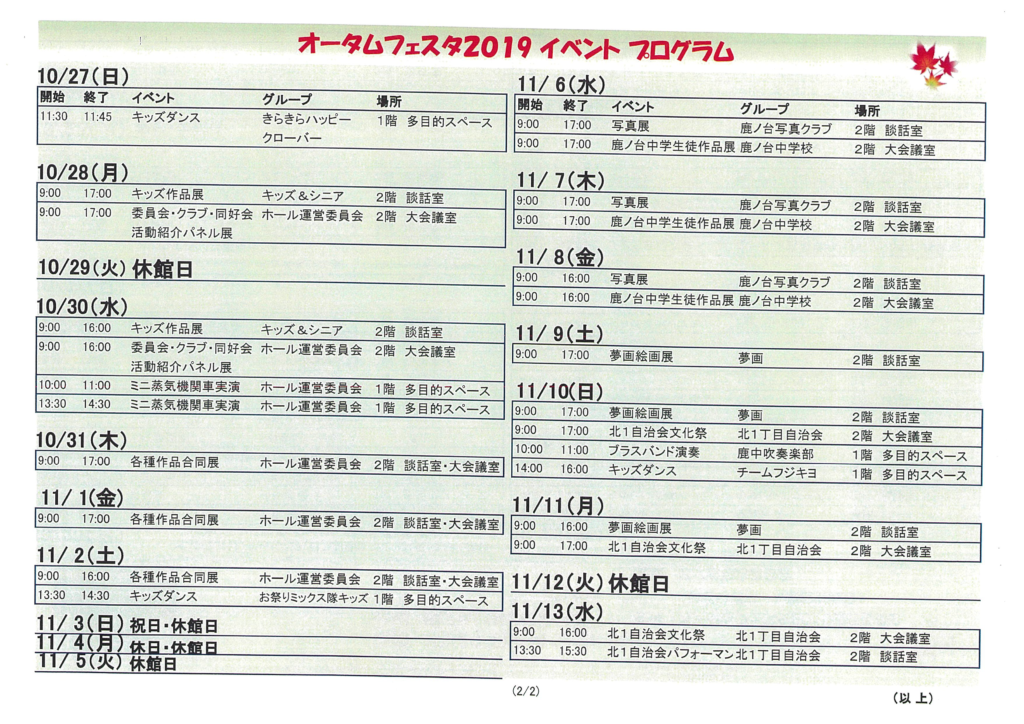 オータムフェスタ2019 イベント プログラム
10/27(日)
開始 終了 イベント グループ 場所
11:30 11:45 キッズダンス きらきらハッピー 1階 多目的スペース
クローバー
10/28(月)
9:00 17:00 キッズ作品展 キッズ&シニア 2階 談話室
9:00 17:00 委員会・クラブ・同好会 ホール運営委員会 2階 大会議室
活動紹介パネル展
10/29(火) 休館日
10/30(水)
9:00 16:00 キッズ作品展 キッズ&シニア 2階 談話室
9:00 16:00 委員会・クラブ・同好会 ホール運営委員会 2階 大会議室
活動紹介パネル展
10:00 11:00 ミニ蒸気機関車実演 ホール運営委員会 1階 多目的スペース
13:30 14:30 ミニ蒸気機関車実演 ホール運営委員会 1階 多目的スペース
10/31(木)
9:00 17:00 各種作品合同展 ホール運営委員会 2階 談話室・大会議室
11/ 1(金)
9:00 17:00 各種作品合同展 ホール運営委員会 2階 談話室・大会議室
11/ 2(土)
9:00 16:00 各種作品合同展 ホール運営委員会 2階 談話室・大会議室
13:30 14:30 キッズダンス お祭りミックス隊キッズ 1階 多目的スペース
11/ 3(日) 祝日・休館日
11/ 4(月) 休日・休館日
11/ 5(火) 休館日
11/ 6(水)
開始 終了 イベント グループ 場所
9:00 17:00 写真展 鹿ノ台写真クラブ 2階 談話室
9:00 17:00 鹿ノ台中学生徒作品展 鹿ノ台中学校 2階 大会議室
11/ 7(木)
9:00 17:00 写真展 鹿ノ台写真クラブ 2階 談話室
9:00 17:00 鹿ノ台中学生徒作品展 鹿ノ台中学校 2階 大会議室
11/ 8(金)
9:00 16:00 写真展 鹿ノ台写真クラブ 2階 談話室
9:00 16:00 鹿ノ台中学生徒作品展 鹿ノ台中学校 2階 大会議室
11/ 9(土)
9:00 17:00 夢画絵画展 夢画 2階 談話室
11/10(日)
9:00 17:00 夢画絵画展 夢画 2階 談話室
9:00 17:00 北1自治会文化祭 北1丁目自治会 2階 大会議室
10:00 11:00 ブラスバンド演奏 鹿中吹奏楽部 1階 多目的スペース
14:00 16:00 キッズダンス チームフジキヨ 1階 多目的スペース
11/11(月)
9:00 16:00 夢画絵画展 夢画 2階 談話室
9:00 17:00 北1自治会文化祭 北1丁目自治会 2階 大会議室
11/12(火) 休館日
11/13(水)
9:00 16:00 北1自治会文化祭 北1丁目自治会 2階 大会議室
13:30 15:30 北1自治会パフォーマン 北1丁目自治会 2階 談話室
(2/2)
(以 上)